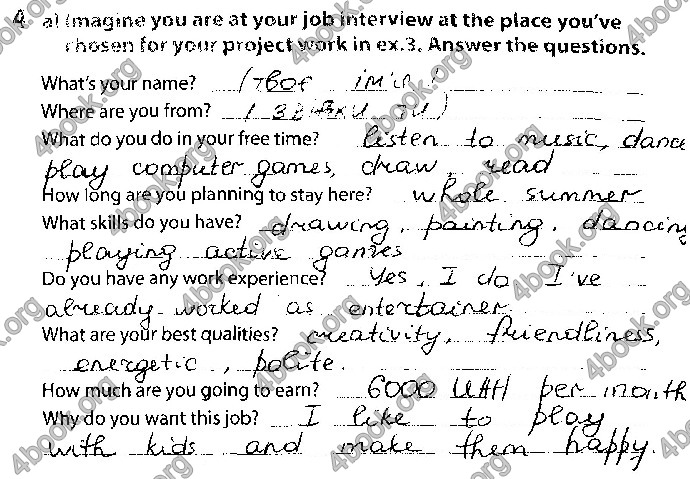 4 a) Imagine you are at your job interview at the place you've
chosen for your project work in ex.3. Answer the questions.
What's your name? (твоє ім'я)
Where are you from? ( звідки ти)
What do you do in your free time? listen to music, dance
play computer games, draw, read
How long are you planning to stay here? whole summer
What skills do you have? drawing, painting, dancing
playing active games
Do you have any work experience? Yes, I do I've
already worked as entertainer
What are your best qualities? creativity, friendliness,
energetic, polite.
How much are you going to earn? 6000 UAH per month
Why do you want this job? I like to play
with kids and make them happy.
4book.org